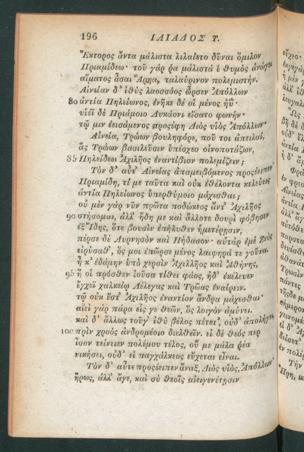 196 ΙΛΙΑΔΟΣ Τ.
Ἕκτορος ἄντα μάλιστα λιλαίετο δῦναι ὅμιλον
Πριαμίδεω· τοῦ γάρ ῥα μάλιστά ἑ θυμὸς ἀνώγει
αἵματος ἆσαι Ἄρηα, ταλαύρινον πολεμιστήν.
Αἰνείαν δ' ἰθὺς λαοσσόος ὦρσεν Ἀπόλλων
80 ἀντία Πηλείωνος, ἐνῆκε δέ οἱ μένος ἠΰ·
υἱέϊ δὲ Πριάμοιο Λυκάονι εἴσατο φωνήν·
τῷ μιν ἐεισάμενος προςέφη Διὸς υἱὸς Ἀπόλλων·
Αἰνεία, Τρώων βουληφόρε, ποῦ τοι ἀπειλαί,
ἃς Τρώων βασιλεῦσιν ὑπέσχεο οἰνοποτάζων,
85 Πηλείδεω Ἀχιλῆος ἐναντίβιον πολεμίζειν;
Τὸν δ' αὖτ' Αἰνείας ἀπαμειβόμενος προςέειπεν·
Πριαμίδη, τί με ταῦτα καὶ οὐκ ἐθέλοντα κελεύεις
ἀντία Πηλείωνος ὑπερθύμοιο μάχεσθαι;
οὐ μὲν γὰρ νῦν πρῶτα ποδώκεος ἄντ' Ἀχιλῆος
90 στήσομαι, ἀλλ' ἤδη με καὶ ἄλλοτε δουρὶ φόβησεν
ἐξ Ἴδης, ὅτε βουσὶν ἐπήλυθεν ἡμετέρῃσιν,
πέρσε δὲ Λυρνησὸν καὶ Πήδασον· αὐτὰρ ἐμὲ Ζεὺς
εἰρύσαθ', ὅς μοι ἐπῶρσε μένος λαιψηρά τε γοῦνα.
ἦ κ' ἐδάμην ὑπὸ χερσὶν Ἀχιλλῆος καὶ Ἀθήνης,
95 ἥ οἱ πρόσθεν ἰοῦσα τίθει φάος, ἠδ' ἐκέλευεν
ἔγχεϊ χαλκείῳ Λέλεγας καὶ Τρῶας ἐναίρειν.
τῷ οὐκ ἔστ' Ἀχιλῆος ἐναντίον ἄνδρα μάχεσθαι·
αἰεὶ γὰρ πάρα εἷς γε θεῶν, ὃς λοιγὸν ἀμύνει.
καὶ δ' ἄλλως τοῦγ' ἰθὺ βέλος πέτετ', οὐδ' ἀπολήγει,
100 πρὶν χροὸς ἀνδρομέοιο διελθεῖν. εἰ δὲ θεός περ
ἶσον τείνειεν πολέμου τέλος, οὔ με μάλα ῥέα
νικήσει, οὐδ' εἰ παγχάλκεος εὔχεται εἶναι.
Τὸν δ' αὖτε προςέειπεν ἄναξ, Διὸς υἱὸς, Ἀπόλλων·
ἥρως, ἀλλ' ἄγε, καὶ σὺ θεοῖς αἰειγενέτῃσιν